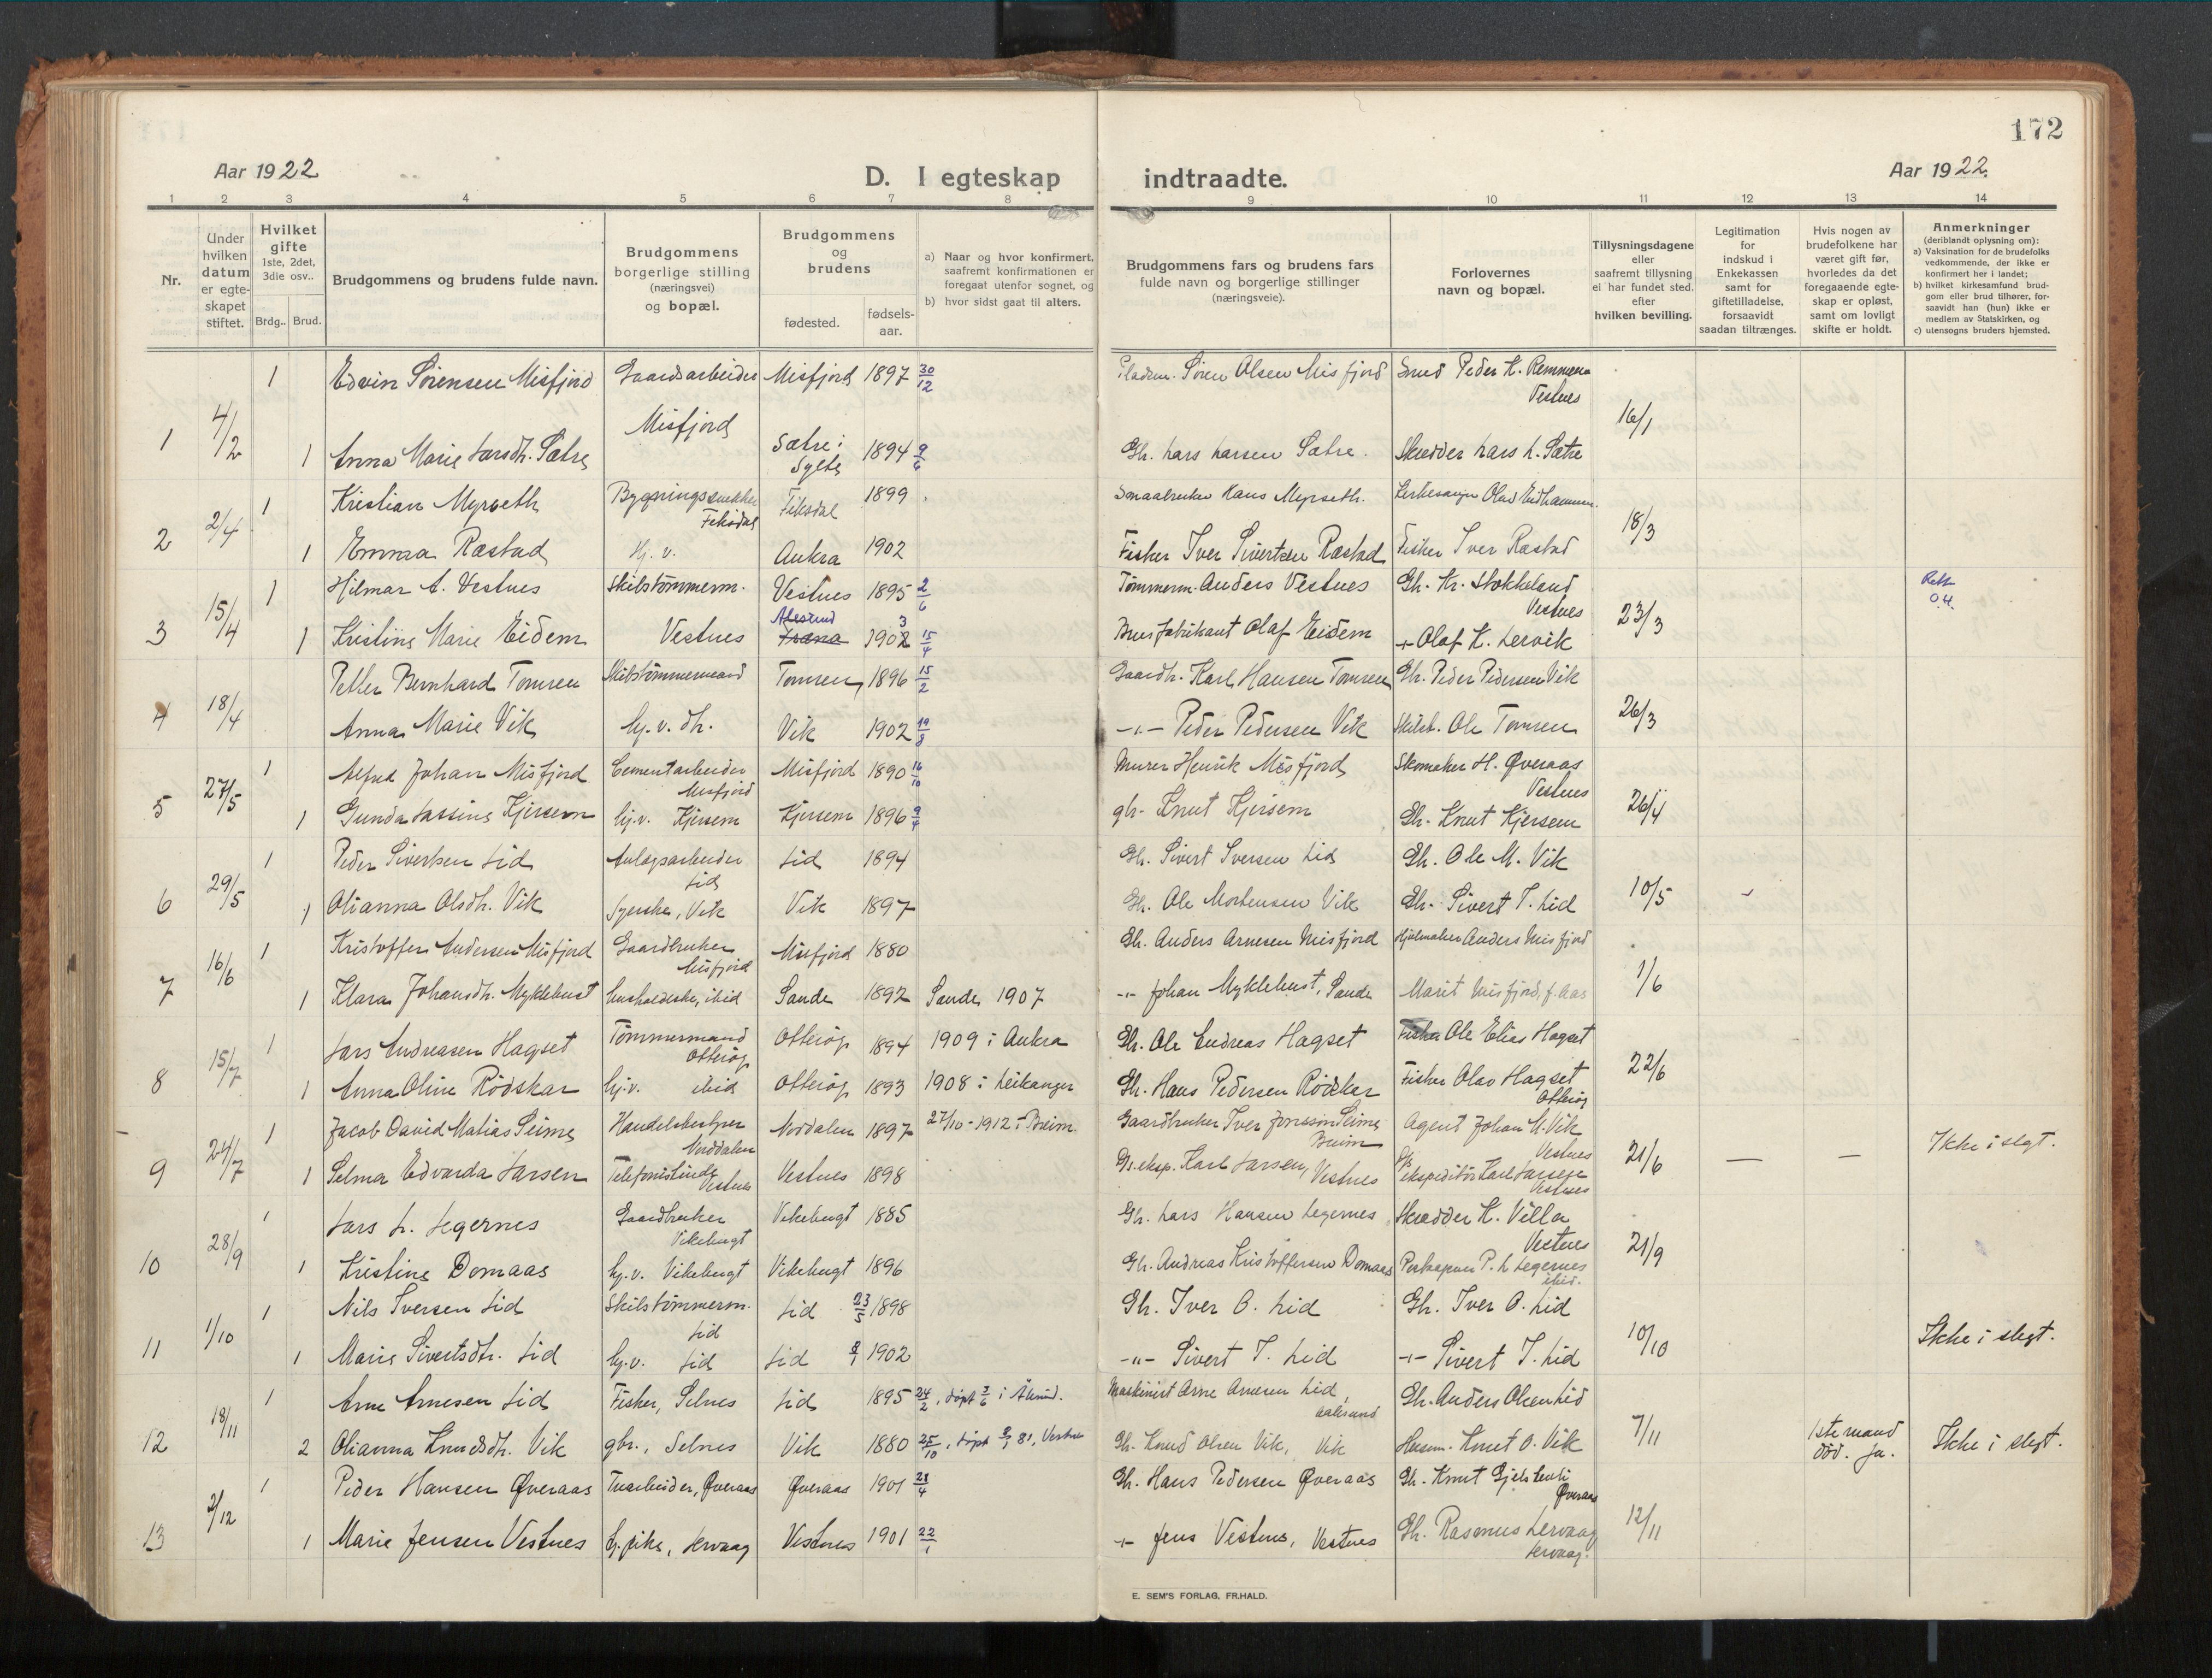 172
Aar 1922
D. I egteskap indtraadte.
Aar 1922.
1 2 3 4 5 6 7 8 9 10 11 12 13 14
Nr.
Under hvilken datum er egteskapet stiftet.
Hvilket gifte 1ste, 2det, 3die osv..
Brdg.. Brud.
Brudgommens og brudens fulde navn.
Brudgommens borgerlige stilling (næringsvei) og bopæl.
Brudgommens og brudens
fødested.
fødselsaar.
a) Naar og hvor konfirmert, saafremt konfirmationen er foregaat utenfor sognet, og
b) hvor sidst gaat til alters.
Brudgommens fars og brudens fars fulde navn og borgerlige stillinger (næringsveie).
Forlovernes navn og bopæl.
Tillysningsdagene eller saafremt tillysning ei har fundet sted. efter hvilken bevilling.
Legitimation for indskud i Enkekassen samt for giftetilladelse, forsaavidt saadan tiltrænges.
Hvis nogen av brudefolkene har været gift før, hvorledes da det foregaaende egteskap er opløst, samt om lovligt skifte er holdt.
Anmerkninger (deriblandt oplysning om):
a) Vaksination for de brudefolks vedkommende, der ikke er konfirmert her i landet;
b) hvilket kirkesamfund brudgom eller brud tilhører, forsaavidt han (hun) ikke er medlem av Statskirken, og
c) utensogns bruders hjemsted.
1 Edvin Sørensen Misfjord Gaardsarbeider Misfjord 1897 30/12 Søren Olsen Misfjord Smed Peder K. Remmem
Vestnes
1 4/2 Misfjord 16/1
1 Anna Marie Larsdh. Sætre Sætre i Sylte 1894 9/6 Gbr. Lars Larsen Sætre. Skrædder Lars L. Sætre
1 Kristian Myrseth Bygningssnekker Fiksdal 1899 Smaabruker Hans Myrseth. Kirkesanger Olav
2 2/4 Fiksdal 18/3
1 Emma Ræstad Hj. v. Aukra 1902 Fisker Iver Sivertsen Ræstad Fisker Iver Ræstad
1 Hilmar A. Vestnes Skibstømmerm. Vestnes 1895 2/6 Tømmerm. Anders Vestnes Gb. Kr. Stokkeland
Vestnes
Rett. O.H.
3 15/4 Aalesund 3 23/3
1 Kristine Marie Eidem Vestnes Fræna 1902 15/4 Brusfabrikant Olaf Eidem -"- Olaf K. Lervik
Petter Bernhard Tomren Skibstømmermand Tomren 1896 15/2 Gaardb. Karl Hansen Tomren Gb. Peder Pedersen Vik
4 18/4 26/3
Anna Marie Vik hj. v. dh. Vik 1902 19/8 -"- Peder Pedersen Vik Skibst. Ole Tomren
1 Alfred Johan Misfjord Cementarbeider Misfjord 1890 16/10 Murer Henrik Misfjord Skomaker H. Øveraas
Misfjord Vestnes
5 27/5 26/4
1 Gunda Lassine Kjersem hj.v. Kjersem Kjersem 1896 9/4 gb- Knut Kjersem Gb. Knut Kjersem
1 Peder Sivertsen Lid Anlægsarbeider Lid 1894 Gb. Sivert Iversen Lid Gb. Ole M. Vik
Lid
6 29/5 10/5
1 Olianna Olsdh. Vik Syerske, Vik Vik 1897 Gb. Ole Mortensen Vik Gb. Sivert I. Lid
1 Kristoffer Andersen Misfjord Gaardbruker Misfjord 1880 Gb. Anders Arnesen Misfjord Hjulmaker Anders Misfjord
Misfjord
7 16/6 1/6
1 Klara Johansdh. Myklebust husholderske, ibid Sande 1892 Sande 1907 -"- Johan Myklebust, Sande Marit Misfjord, f. Aas
1 Lars Andreasen Hagset Tømmermand Otterøy 1894 1909 i Aukra Gb. Ole Andreas Hagset Fisker Ole Elias Hagset
Otterøy
8 15/7 22/6
1 Anna Oline Rödskar hj.v. ibid Otterøy 1893 1908 i Leikanger Gb. Hans Pedersen Rödskar Fisker Olav Hagset
Otterøy
1 Jacob David Matias Seime Handelsbestyrer Norddalen 1897 27/10-1912 i Breim. Gaardbruker Iver Jonsson Seime Agent Johan M. Vik
Norddalen Breim Vestnes
9 24/7 21/6 — — Ikke i slegt.
1 Selma Edvarda Larsen Telefonistinde Vestnes 1898 Ds.eksp. Karl Larsen, Vestnes ekspeditör Karl Larsen
Vestnes Vestnes
1 Lars L. Legernes Gaardbruker Vikebugt 1885 Gb. Lars Hansen Legernes Skrædder K. Villa
Vikebugt Vestnes
10 28/9 21/9
1 Kristine Domaas hj.v. Vikebugt Vikebugt 1896 Gb. Andreas Kristoffersen Domaas P. L. Legernes
ibid.
1 Nils Iversen Lid Skibstømmerm. Lid 23/5 1898 Gb. Iver O. Lid Gb. Iver O. Lid
Lid
11 1/10 10/10 Ikke i slegt.
1 Marie Sivertsdh. Lid hj.v. Lid Lid 8/1 1902 -"- Sivert I. Lid -"- Sivert I. Lid
1 Arne Arnesen Lid Fisker, Selnes Lid 1895 24/2, døpt 3/6 i Ålesund. Maskinist Arne Arnesen Lid, Gb. Anders Olsen Lid
Aalesund
12 18/11 7/11 1ste mand död. Ja. Ikke i slegt.
2 Olianna Knudsdh. Vik gbr., Selnes Vik 1880 25/10, døpt 81, Vestnes Gb. Knud Olsen Vik, Vik Husm. Knut O. Vik
1 Peder Hansen Øveraas Øveraas Øveraas 1901 28/4 Gb. Hans Pedersen Øveraas Gb. Knut Gjelstenli
Øveraas
13 2/12 12/11
1 Marie Jensen Vestnes hj.pike, Lervaag Vestnes 1901 22/1 -"- Jens Vestnes, Vestnes Gb. Rasmus Lervaag
Lervaag.
E. SEM'S FORLAG, FR.HALD.